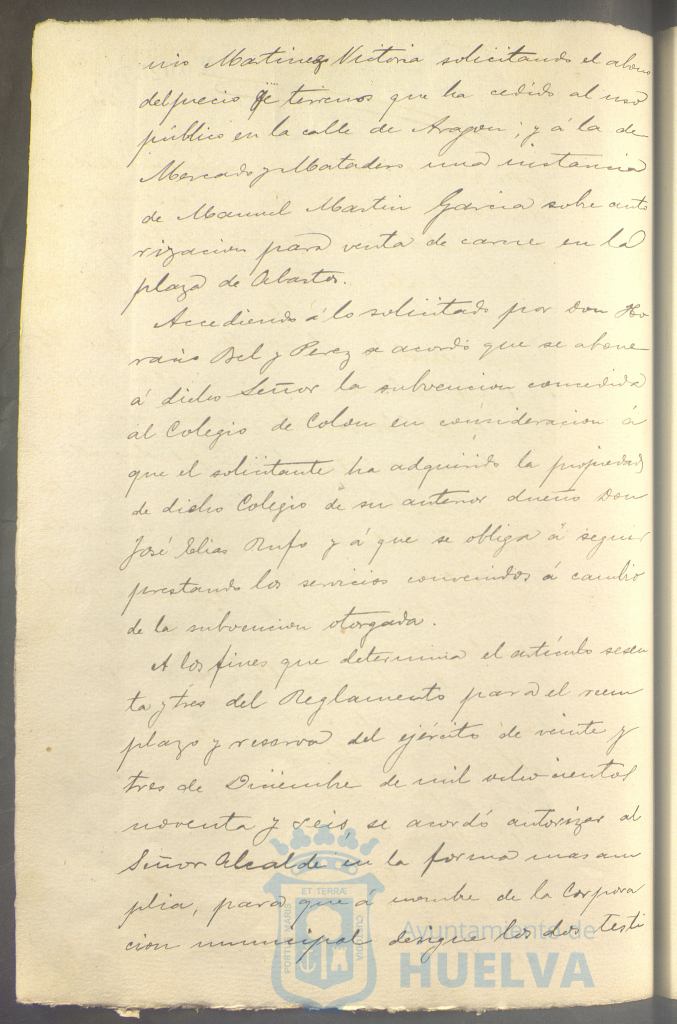 nio Martinez Victoria solicitando el abono
del precio de terrenos que ha cedido al uso
público en la calle de Aragon; y á la de
Mercado y Matadero una instancia
de Manuel Martin Garcia sobre auto
rizacion para venta de carne en la
plaza de Abastos.
Accediendo á lo solicitado por Don Ho
racio Bel y Perez se acordó que se abone
á dicho Señor la subvencion concedida
al Colegio de Colon en consideracion á
que el solicitante ha adquirido la propiedad
de dicho Colegio de su anterior dueño Don
José Elias Rufo y á que se obliga á seguir
prestando los servicios convenidos á cambio
de la subvencion otorgada.
A los fines que determina el artículo sesen
ta y tres del Reglamento para el reem
plazo y reserva del ejército de veinte y
tres de Diciembre de mil ochocientos
noventa y seis, se acordó autorizar al
Señor Alcalde en la forma mas am
plia, para que á nombre de la Corpora
cion municipal designe los dos testi
PORTUS MARIS ET TERRÆ CUSTODIA
Ayuntamiento de
HUELVA